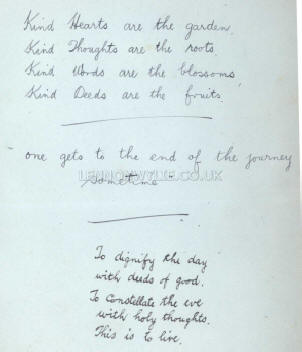 Kind Hearts are the garden,
Kind Thoughts are the roots.
Kind Words are the blossoms,
Kind Deeds are the fruits.
one gets to the end of the journey
LENNONWYLIE.CO.UK
sometime
To dignify the day
with deeds of good.
To Constellate the eve
with holy thoughts.
This is to live.